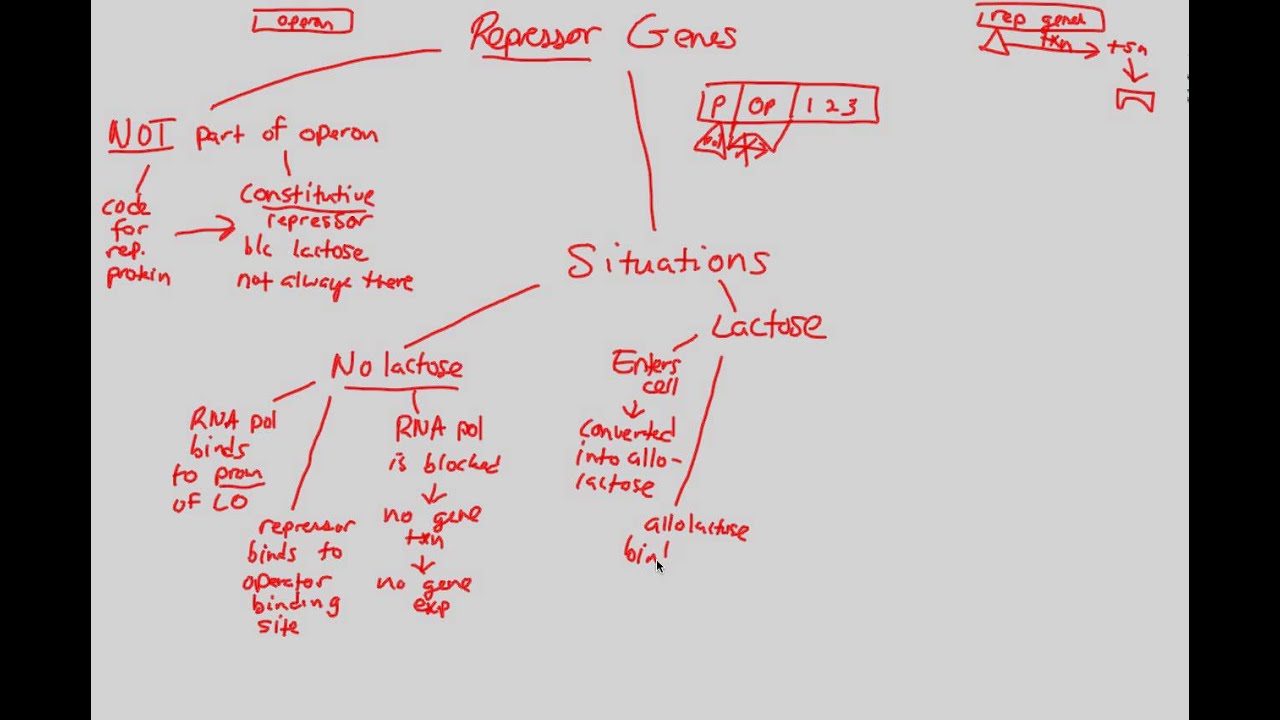 operon
Repressor Genes
rep gene
txn
tsn
P OP 1 2 3
pol
NOT part of operon
code
for
rep.
protein
Constitutive
repressor
b/c lactose
not always there
Situations
No lactose
RNA pol
binds
to prom
of LO
repressor
binds to
operator
binding
site
RNA pol
is blocked
no gene
txn
no gene
exp
Lactose
Enters
cell
converted
into allo-
lactose
allolactose
bin